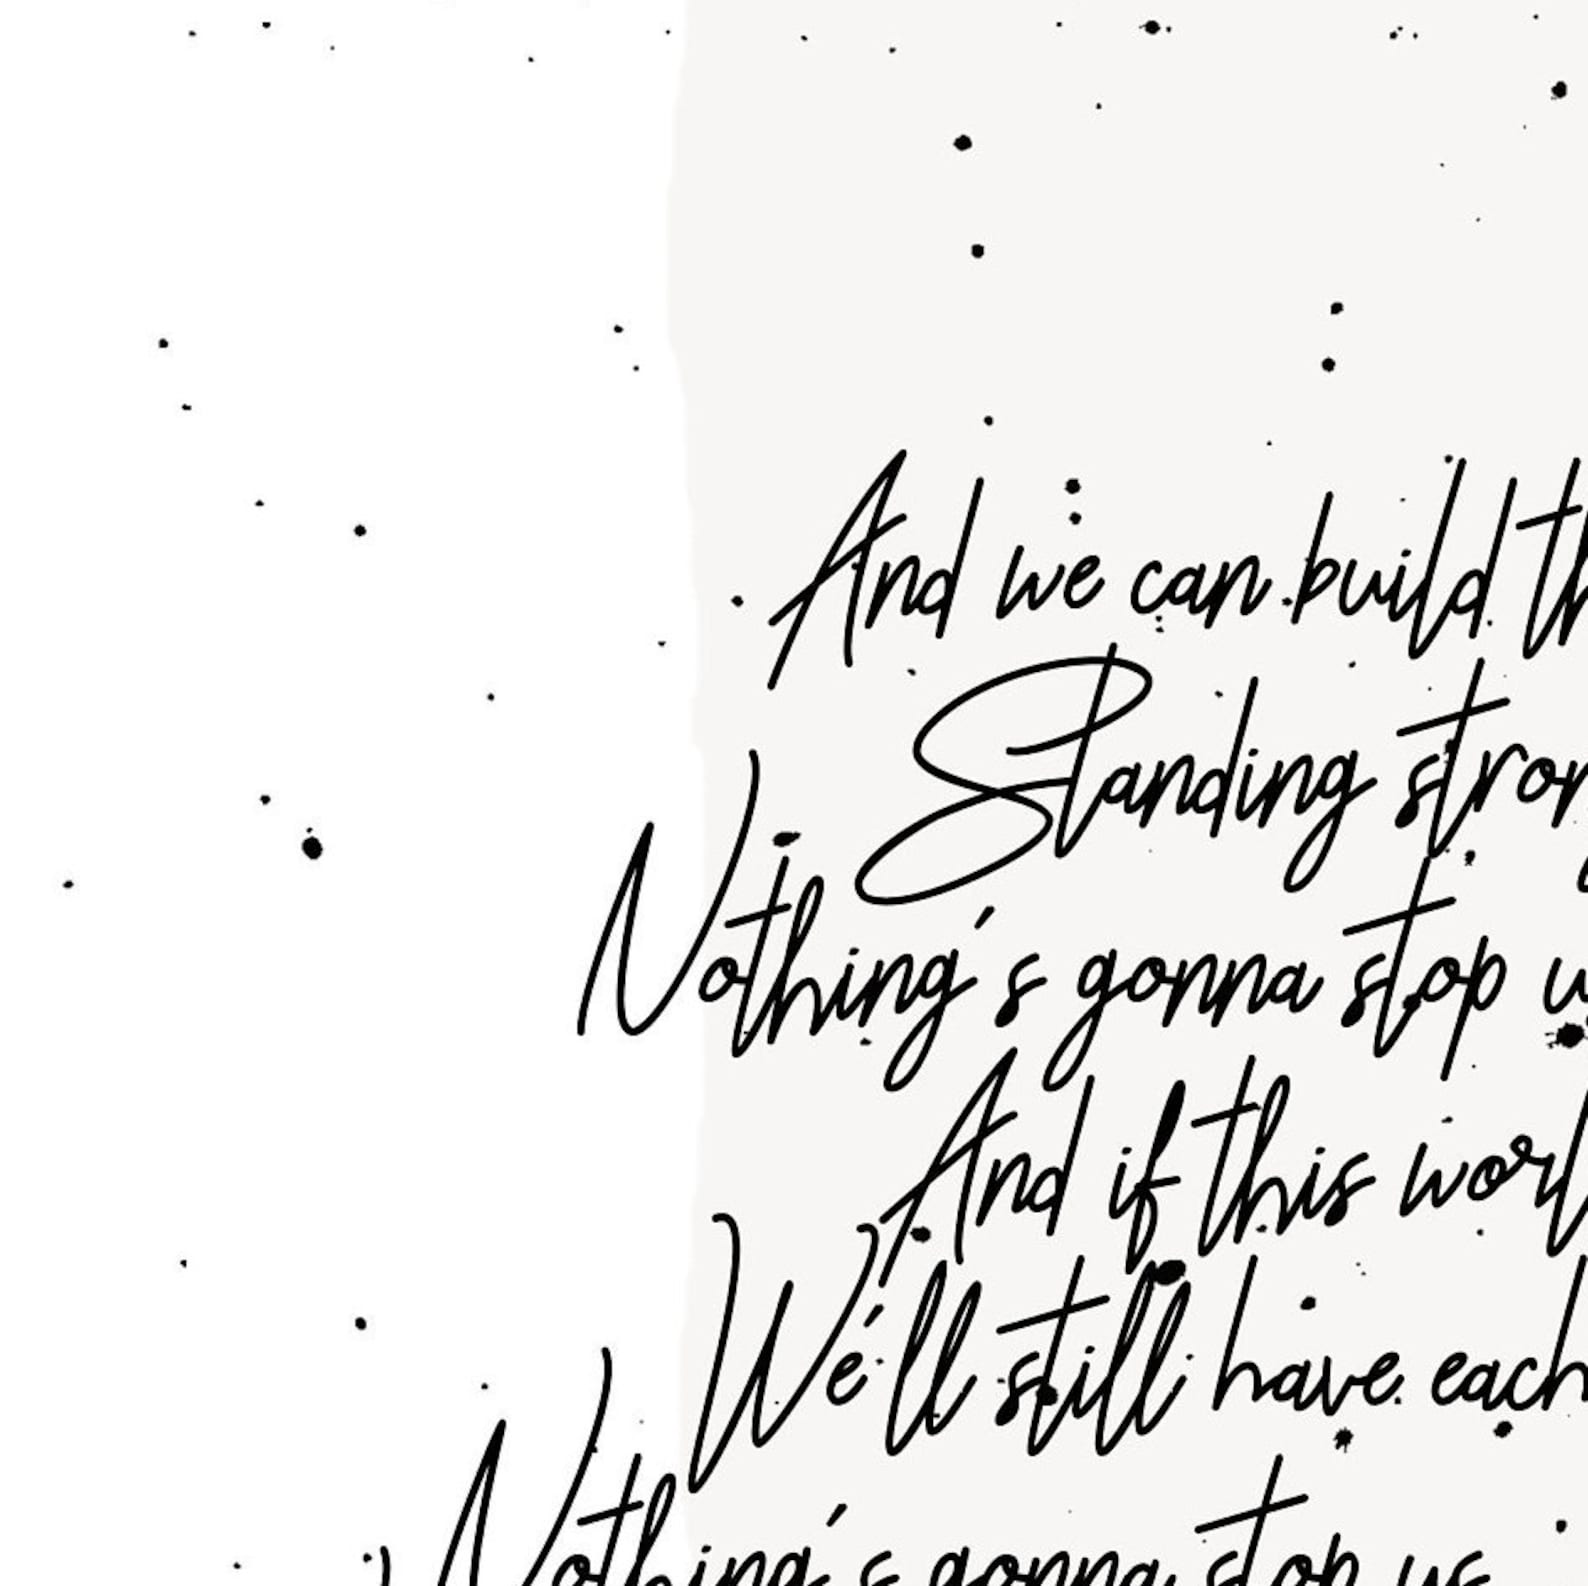 And we can build th
Standing stron
Nothing's gonna stop u
And if this worl
We'll still have each
Nothing's gonna stop us